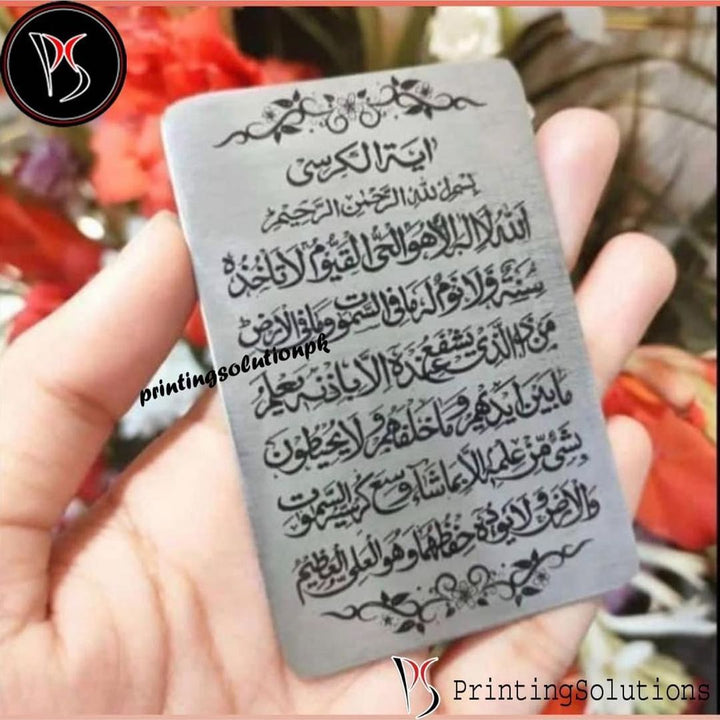 PS
اية الكرسى
بسم الله الرحمن الرحيم
الله لا اله الا هو الحى القيوم لا تاخذه
سنة ولا نوم له ما فى السموت وما فى الارض
من ذا الذى يشفع عنده الا باذنه يعلم
ما بين ايديهم وما خلفهم ولا يحيطون
بشئ من علمه الا بما شاء وسع كرسيه السموت
والارض ولا يوده حفظهما وهو العلى العظيم
printingsolutionpk
PS PrintingSolutions